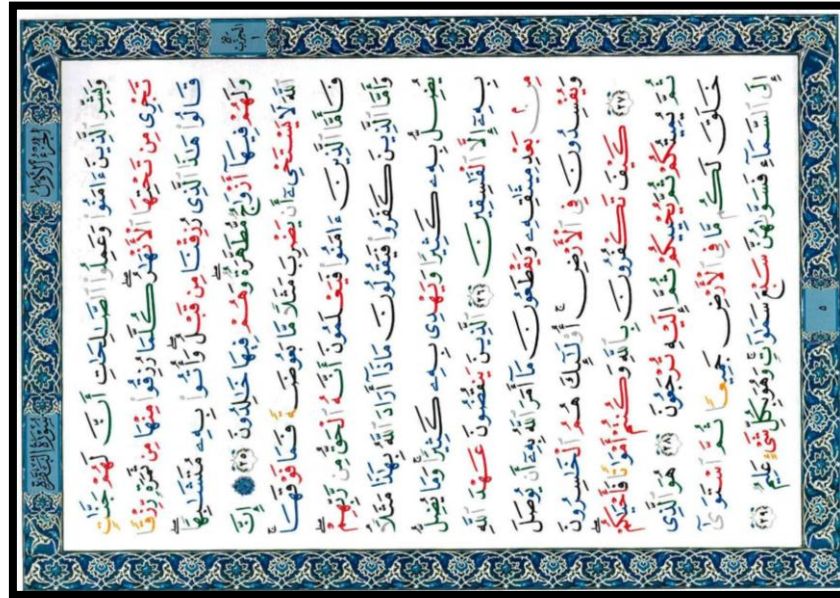 سُورَةُ الْبَقَرَةِ
الجُزْءُ الأَوَّلُ
الحِزْبُ ١
وَبَشِّرِ ٱلَّذِينَ ءَامَنُوا۟ وَعَمِلُوا۟ ٱلصَّـٰلِحَـٰتِ أَنَّ لَهُمْ جَنَّـٰتٍ
تَجْرِى مِن تَحْتِهَا ٱلْأَنْهَـٰرُ ۖ كُلَّمَا رُزِقُوا۟ مِنْهَا مِن ثَمَرَةٍ رِّزْقًا ۙ
قَالُوا۟ هَـٰذَا ٱلَّذِى رُزِقْنَا مِن قَبْلُ ۖ وَأُتُوا۟ بِهِۦ مُتَشَـٰبِهًا ۖ
وَلَهُمْ فِيهَآ أَزْوَٰجٌ مُّطَهَّرَةٌ ۖ وَهُمْ فِيهَا خَـٰلِدُونَ ﴿٢٥﴾ ۞ إِنَّ
ٱللَّهَ لَا يَسْتَحْىِۦٓ أَن يَضْرِبَ مَثَلًا مَّا بَعُوضَةً فَمَا فَوْقَهَا ۚ
فَأَمَّا ٱلَّذِينَ ءَامَنُوا۟ فَيَعْلَمُونَ أَنَّهُ ٱلْحَقُّ مِن رَّبِّهِمْ ۖ
وَأَمَّا ٱلَّذِينَ كَفَرُوا۟ فَيَقُولُونَ مَاذَآ أَرَادَ ٱللَّهُ بِهَـٰذَا مَثَلًا ۘ
يُضِلُّ بِهِۦ كَثِيرًا وَيَهْدِى بِهِۦ كَثِيرًا ۚ وَمَا يُضِلُّ
بِهِۦٓ إِلَّا ٱلْفَـٰسِقِينَ ﴿٢٦﴾ ٱلَّذِينَ يَنقُضُونَ عَهْدَ ٱللَّهِ
مِنۢ بَعْدِ مِيثَـٰقِهِۦ وَيَقْطَعُونَ مَآ أَمَرَ ٱللَّهُ بِهِۦٓ أَن يُوصَلَ
وَيُفْسِدُونَ فِى ٱلْأَرْضِ ۚ أُو۟لَـٰٓئِكَ هُمُ ٱلْخَـٰسِرُونَ
﴿٢٧﴾ كَيْفَ تَكْفُرُونَ بِٱللَّهِ وَكُنتُمْ أَمْوَٰتًا فَأَحْيَـٰكُمْ ۖ
ثُمَّ يُمِيتُكُمْ ثُمَّ يُحْيِيكُمْ ثُمَّ إِلَيْهِ تُرْجَعُونَ ﴿٢٨﴾ هُوَ ٱلَّذِى
خَلَقَ لَكُم مَّا فِى ٱلْأَرْضِ جَمِيعًا ثُمَّ ٱسْتَوَىٰٓ
إِلَى ٱلسَّمَآءِ فَسَوَّىٰهُنَّ سَبْعَ سَمَـٰوَٰتٍ ۚ وَهُوَ بِكُلِّ شَىْءٍ عَلِيمٌ ﴿٢٩﴾
٥